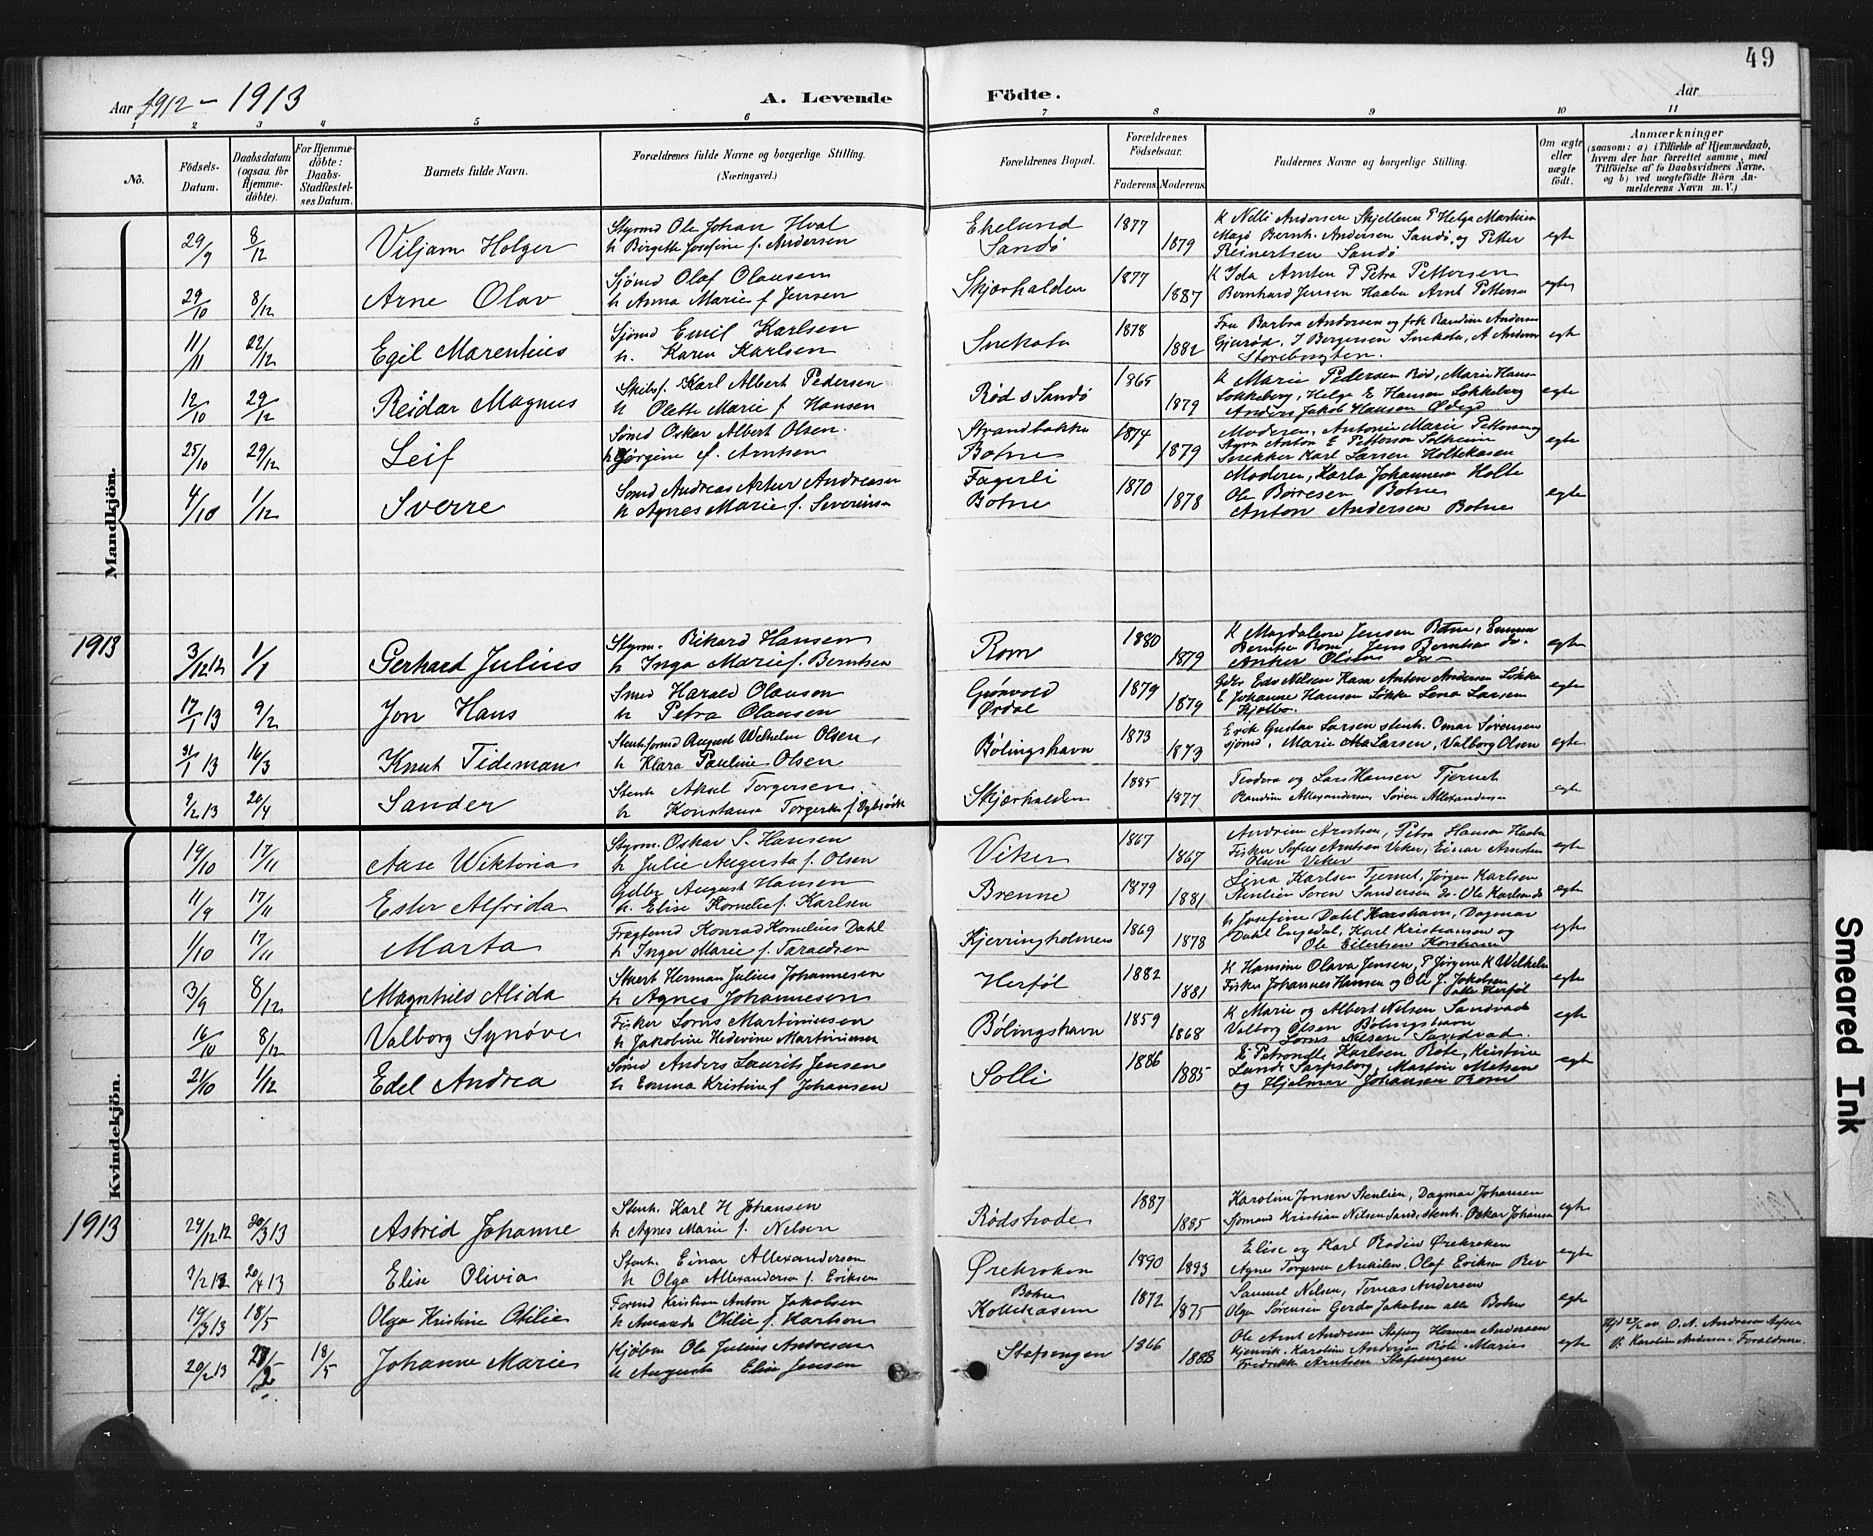 49
Aar 1912 - 1913 A. Levende Födte. Aar
1 2 3 4 5 6 7 8 9 10 11
No. Födsels-Datum. Daabsdatum (ogsaa for Hjemmedöbte). For Hjemmedöbte: Daabs-Stadfæstelses Datum. Barnets fulde Navn. Forældrenes fulde Navne og borgerlige Stilling. (Næringsvei.) Forældrenes Bopæl. Forældrenes Födselsaar. Faderens. Moderens. Faddernes Navne og borgerlige Stilling. Om ægte eller uægte födt. Anmærkninger (saasom: a) i Tilfælde af Hjemmedaab, hvem der har forrettet samme, med Tilföielse af to Daabsvidners Navne, og b) ved uægtefödte Börn Anmelderens Navn m. V.)
Mandkjön.
29/9 8/12 Viljam Holger Styrmd Ole Johan Hval h Birgitte Josefine f. Andersen Ekelund Sandö 1877 1879 K Nelli Andersen Skjelleru P Helga Martinsen Magö Bernh. Andersen Sandö, og Petter Reinertsen Sandö egte
29/10 8/12 Arne Olav Sjömd Olaf Olausen h Anna Marie f Jensen Skjærhalden 1877 1887 K Ida Arntsen P Petra Pettersen Bernhard Jensen Haabu Arnt Pettersen egte
11/11 22/12 Egil Marentius Sjömd Emil Karlsen h. Karen Karlsen Snekota 1878 1882 Fru Barbra Andersen og frk Randine Andersen Gjeuröd, J Borgersen Snekota, A Andersen Storebugten. egte
12/10 29/12 Reidar Magnus Skibsf. Karl Albert Pedersen h Olette Marie f Hansen Röd s Sandö 1865 1879 K Marie Pedersen Röd, Marie Hans- Lökkeberg, Helge E Hansen Lökkeberg Anders Jakob Hansen Ödegd egte
25/10 29/12 Leif Sömd Oskar Albert Olsen. h Jörgine f. Arntsen Strandbakken Botne 1874 1879 Moderen, Antonie Marie Pettersen og Anton E Petterson Solheim Snekker Karl Larsen Holtekasen egte
4/10 1/12 Sverre Sömd Andreas Artur Andreasen h Agnes Marie f. Severinsen Fagerli Botne 1870 1878 Moderen, Karla Johannesen Holte Ole Börresen Botne Anton Andersen Botne egte
1913
3/12 12 1/1 Gerhard Julius Styrm. Rikard Hansen h Inga Marie f. Berntsen Rom 1880 1879 K Magdalene Jensen Botne, Emma Berntsen Rom, Jens Berntsen do. Anker Olsen do egte
17/1 13 9/2 Jon Hans Smed Harald Olausen h Petra Olausen Grönvold Ördal 1879 1879 Gdbr Edv Nelsen Kasa Anton Andersen Lökka E Johanne Hansen Lökke Lena Larsen egte
31/1 13 16/3 Knut Tideman Stenh.formd August Wilhelm Olsen, h Klara Pauline Olsen Bölingshavn 1873 1873 Erik Gustav Larsen stenh. Omar Sörensen sjömd, Marie Larsen, Valborg Olsen egte
9/2 13 20/4 Sander Stenh Aksel Torgersen h Konstanse Torgersen f Skjærhalden 1885 1877 Teodora og Lars Hansen Tjernet Randine Allexandersen, Sören Allexandersen egte
Kvindekjön.
19/10 17/11 Aase Wiktoria Styrm. Oskar S. Hansen h Julie Augusta f. Olsen Viker 1867 1867 Andrine Arntsen, Petra Hansen Haabu Fisker Sofus Arntsen Viker, Einar Arntsen Olsen Viker egte
11/9 17/11 Ester Alfrida Gdbr August Hansen h. Elise Kornelie f. Karlsen Brenne 1879 1881 Lina Karlsen Tjernet, Jörgen Karlsen Stenlien Sören Sandersen do. Ole Karlsen do egte
1/10 17/11 Marta Fragtemd Konrad Kornelius Dahl h Inger Marie f. Taraldsen Kjerringholmen 1869 1878 h Josefine Dahl Korshavn, Dagmar Dahl Engedal, Karl Kristiansen og Ole Eilertsen Korshavn egte
3/9 8/12 Magnhild Alida Stuert Herman Julius Johannesen h Agnes Johannesen Herföl 1882 1881 K Hansine Olava Jensen, P Jörgine K Wilhelm Fisker Johannes Hansen og Ole J. Jakobsen alle Herföl egte
16/10 8/12 Valborg Synöve Fisker Lorns Martiniusen h Jakobine Hedevine Martiniusen Bölingshavn 1859 1868 K Marie og Albert Nelsen Sandvad Valborg Olsen Bölingshavn Lorns Nelsen Sandvad. egte
21/10 1/12 Edel Andrea Sömd Anders Laurits Jensen h Emma Kristine f Johansen Solli 1886 1885 E Petronelle Karlsen Röte, Kristine Lunde Sarpsborg, Martin Matsen og Hjelmer Johansen Rom egte
1913
29/12 12 20/3 13 Astrid Johanne Stenh. Karl H Johansen h Agnes Marie f. Nelsen Rödshode 1887 1885 Karoline Jensen Stenlien, Dagmar Johansen Sömand Kristian Nilsen Sand, stenh. Oskar Johansen egte
7/2 13 20/4 13 Elise Olivia Stenh. Einar Allexandersen h Olga Allexandersen f. Eriksen Örekroken 1890 1893 Elise og Karl Bodin Örekroken Agnes Torgersen Arekilen, Olaf Eriksen Rev egte
19/3 13 18/5 Olga Kristine Otilie Formd Kristian Anton Jakobsen h Amanda Otilie f. Karlsen Botne Kollekasen 1872 1875 Samuel Nelsen, Tomas Andersen Olga Sörensen Gerda Jakobsen alle Botne egte
20/2 13 23/2 18/5 Johanne Marie Hjölbm Ole Julius Andresen h Augusta Elise Jensen Stafsengen 1866 1883 Ole Arnt Andresen Stafseng Herman Andersen Kjenvik. Karoline Andersen Röte. Marie Fredrikke Arntsen Stafsengen egte Hjd 23/2 av O. A. Andresen Stafsen V. Karoline Andersen Foraldrene.
Smeared Ink